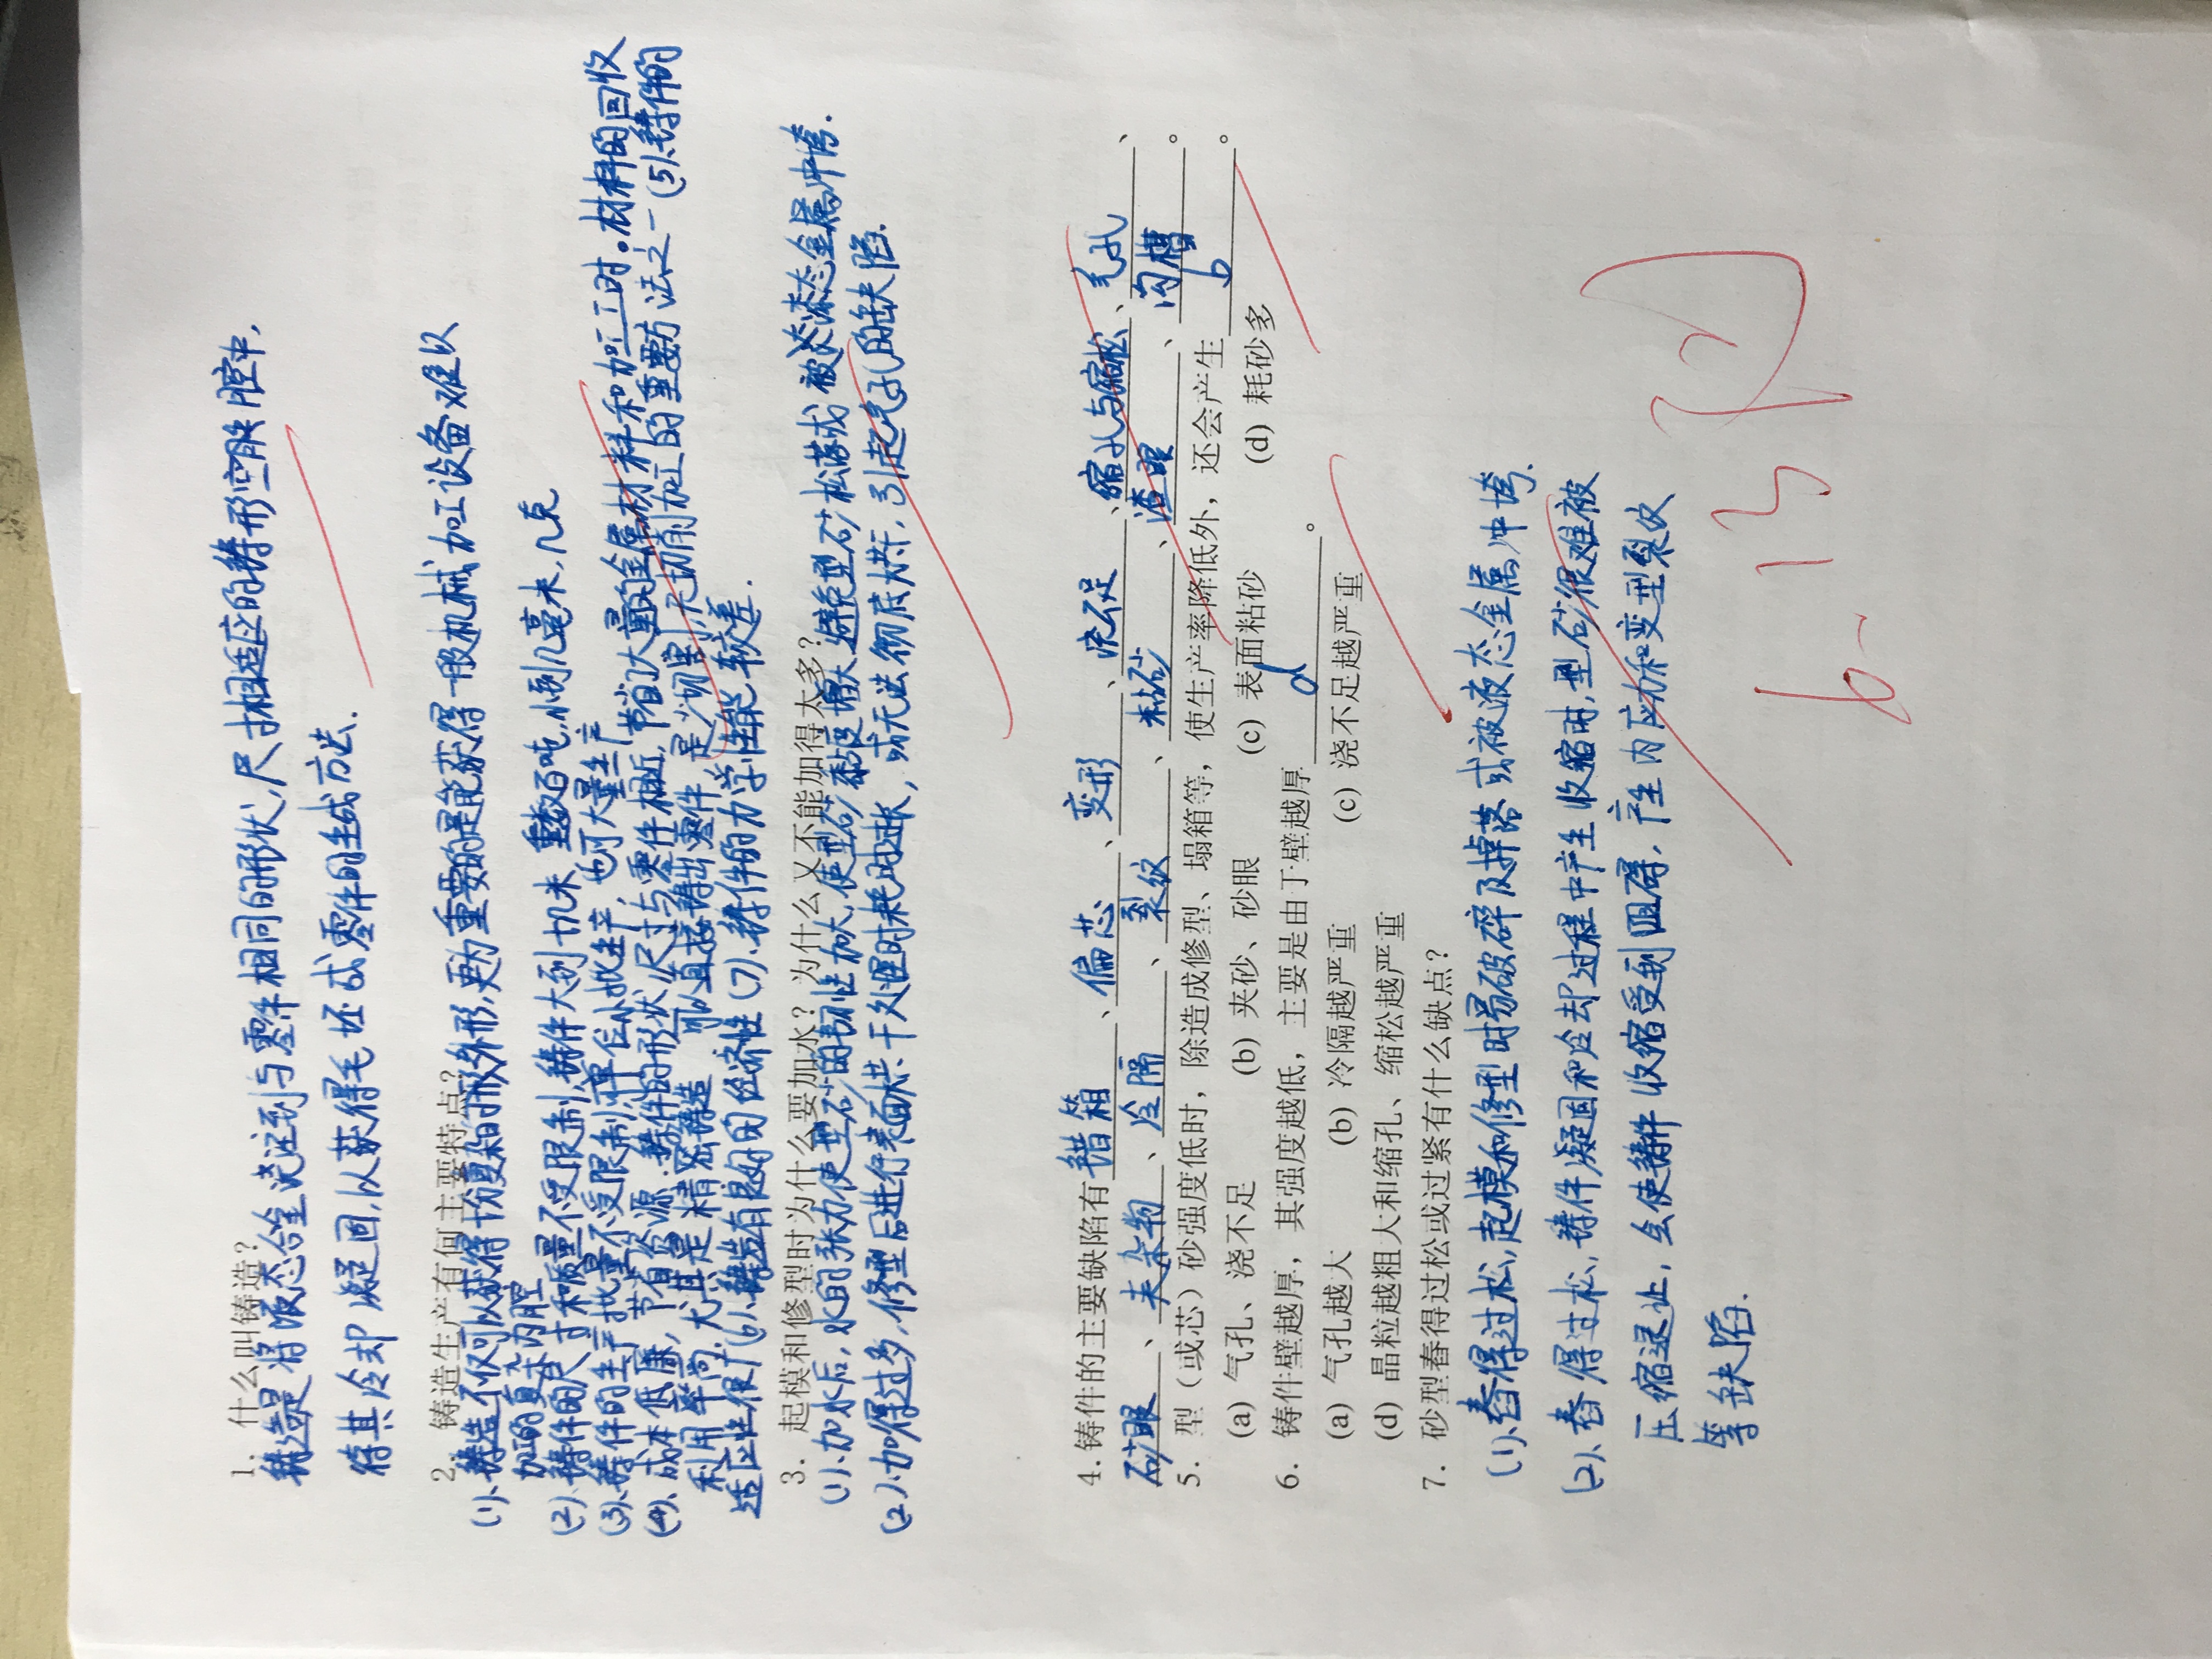 1. 什么叫铸造?
铸造是将液态合金浇注到与零件相同的形状,尺寸相适应的铸形空腔中,
待其冷却凝固,以获得毛坯或零件的生成方法.
2. 铸造生产有何主要特点?
(1)、铸造不仅可以获得十分复杂的形外形,更为重要的是能获得一般机械加工设备难以
加工的复杂内腔
(2)、铸件的尺寸和质量不受限制,铸件大到十几米 重数百吨,小到几毫米,几克
(3)、铸件的生产批量不受限制,可单位小批生产,也可大量生产
(4)、成本低廉,节省资源.铸件的形状/尺寸与零件相近,节省了大量的金属材料和加工工时。材料的回收
利用率高,尤其是精密铸造 可以直接铸出零件,是少切割,无切削加工的重要方法之一 (5)、铸件的
适应性很广 (6)、铸造有良好的经济性 (7)、铸件的力学性能较差.
3. 起模和修型时为什么要加水? 为什么又不能加得太多?
(1)、加水后,水的张力使型砂的韧性加大,使型砂黏度增大,避免型砂松落或被液态金属冲垮.
(2)、加得过多,修型后进行表面烘干处理时耗时过长,或无法彻底烘干,引起气孔的缺陷.
4.铸件的主要缺陷有 错箱 、 偏芯 、 变形 、 浇不足 、 缩孔与缩松 、 毛孔 、
砂眼 、 夹杂物 、 冷隔 、 裂纹 、 粘砂 、 渣眼 、 沟槽 。
5. 型(或芯)砂强度低时,除造成修型、塌箱等,使生产率降低外,还会产生 b 。
(a) 气孔、浇不足 (b) 夹砂、砂眼 (c) 表面粘砂 (d) 耗砂多
6. 铸件壁越厚,其强度越低,主要是由于壁越厚 d 。
(a) 气孔越大 (b) 冷隔越严重 (c) 浇不足越严重
(d) 晶粒越粗大和缩孔、缩松越严重
7. 砂型舂得过松或过紧有什么缺点?
(1)、舂得过松,起模和修型时易破碎及掉落或被液态金属冲垮.
(2)、舂得过松,铸件凝固和冷却过程中产生收缩时,型砂很难被
压缩退让,会使铸件收缩受到阻碍,产生内应力和变型裂纹
等缺陷.